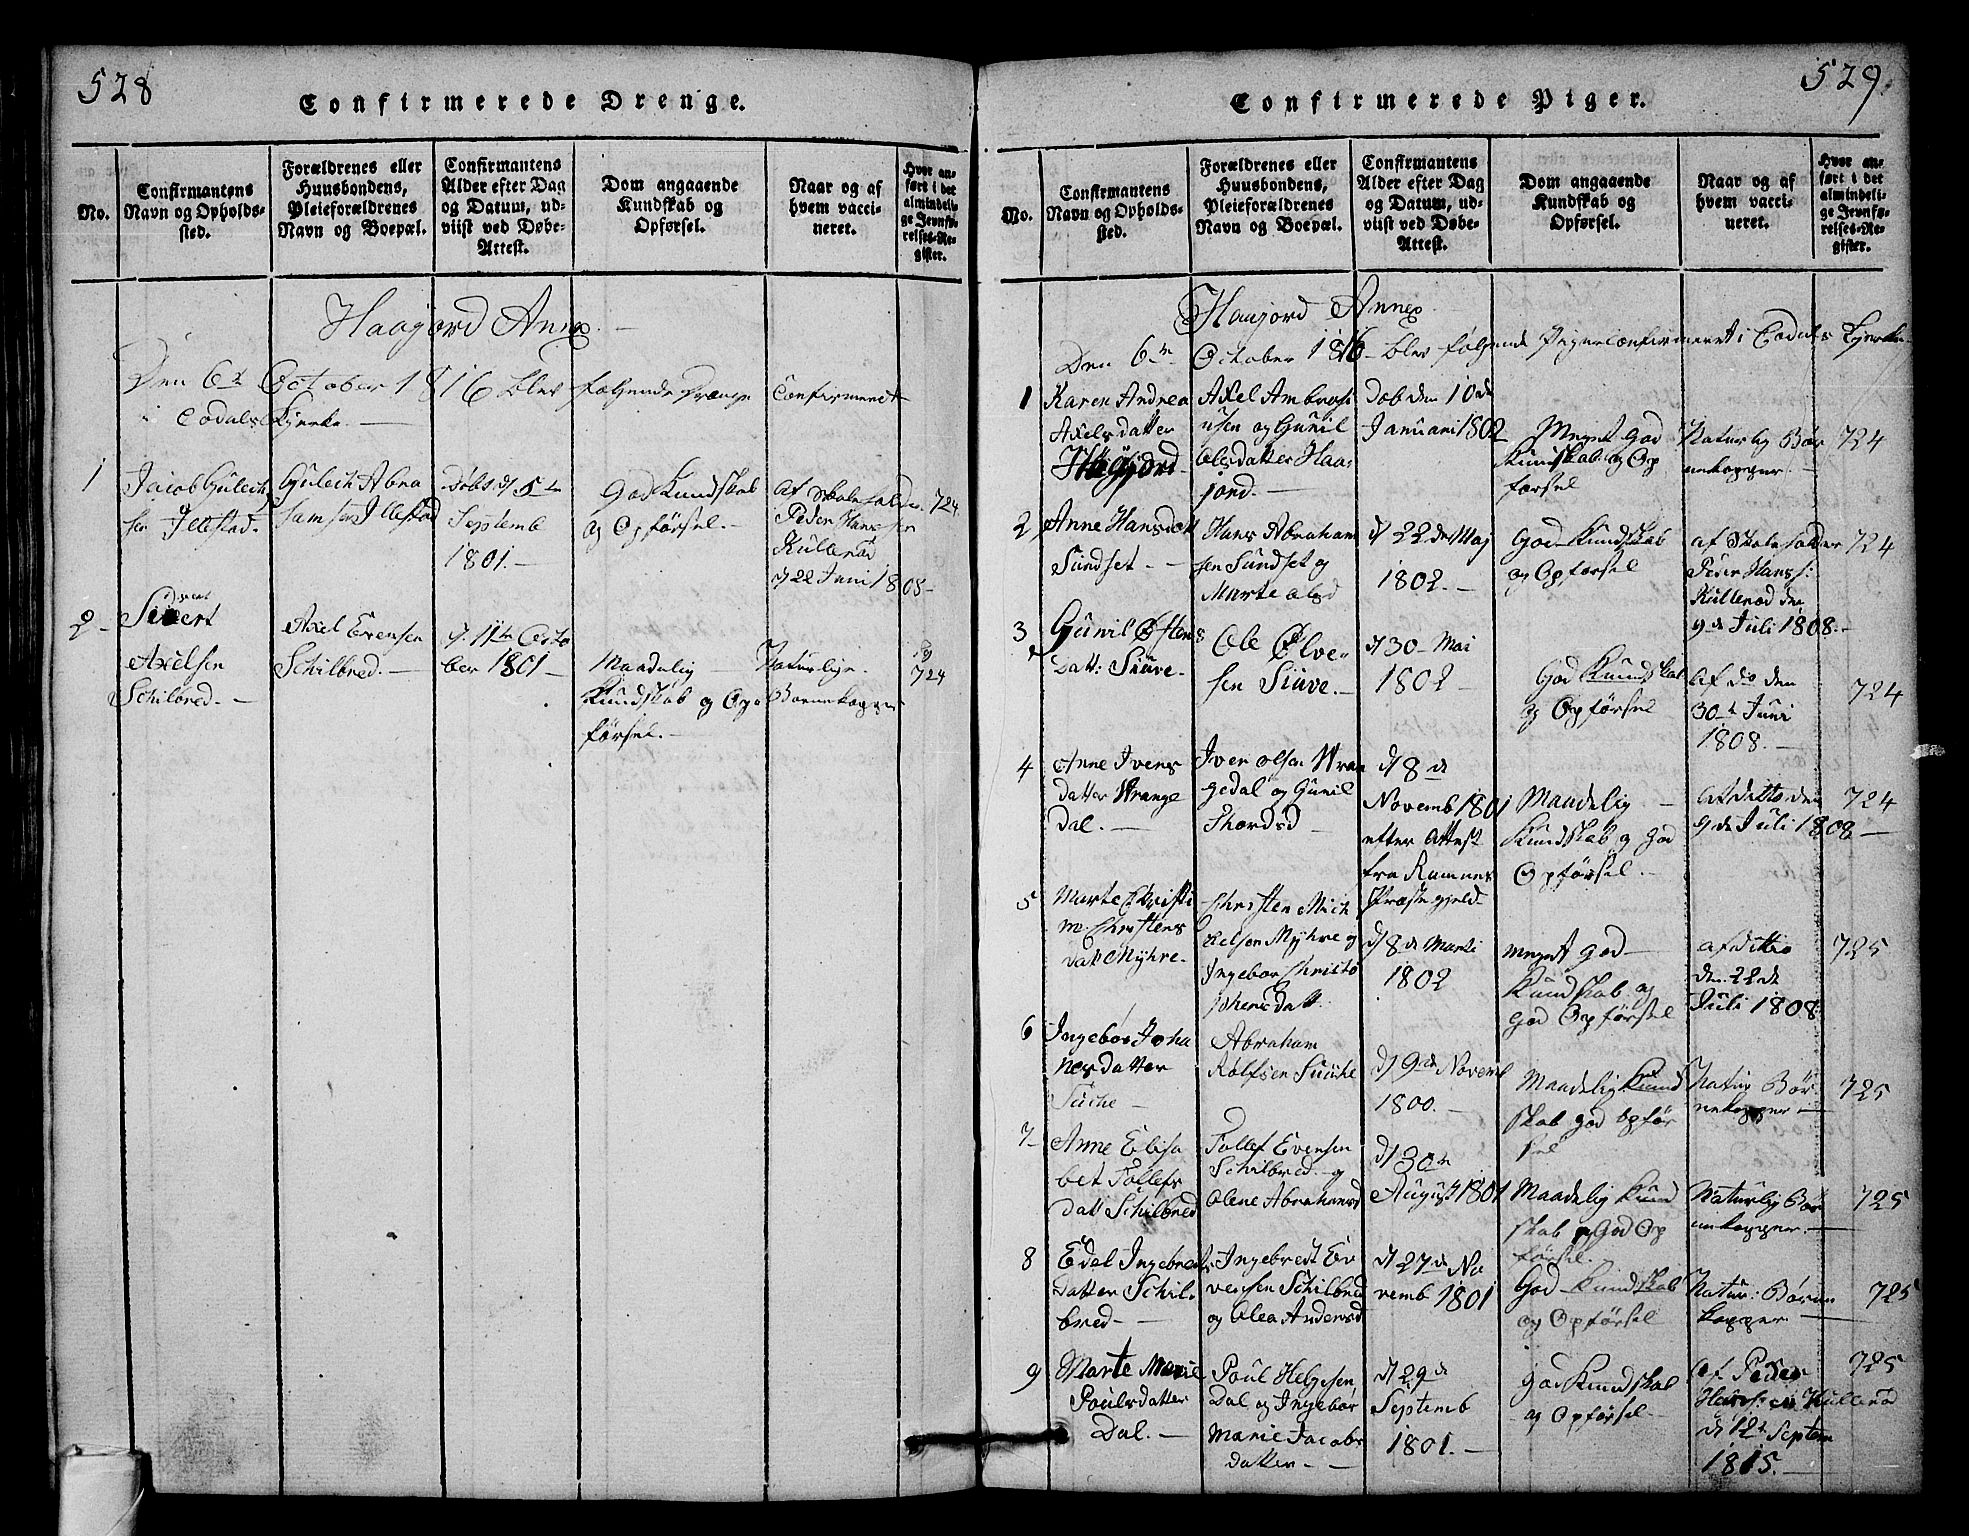 528
Confirmerede Drenge.
No.
Confirmantens
Navn og Opholds-
sted.
Forældrenes eller
Huusbondens,
Pleieforældrenes
Navn og Boepæl.
Confirmantens
Alder efter Dag
og Datum, ud-
viist ved Døbe-
Attest.
Dom angaaende
Kundskab og
Opførsel.
Naar og af
hvem vacci-
neret.
Hvor an-
ført i det
almindeli-
ge Jevnfø-
relses-Re-
gister.
Haagord Annex.
Den 6te October 1816 blev følgende Drenge Confirmeret
i Eodals Kjerke.
1
Jacob Gulech
sen Illestad.
Gulech Abra
hamsen Illestad
Døbt d. 5te
Septemb
1801.
God Kundskab
og Opførsel.
af Skoleholder
Peder Hansen
Kullerød
d 22 Juni 1808
724
2
Sivert
Axelsen
Schilbred.
Axel Evensen
Schilbred.
d. 11te Octo
ber 1801
Maadelig
Kundskab og Op
førsel.
Naturlige
Børnekopper
724
529.
Confirmerede Piger.
No.
Confirmantens
Navn og Opholds-
sted.
Forældrenes eller
Huusbondens,
Pleieforældrenes
Navn og Boepæl.
Confirmantens
Alder efter Dag
og Datum, ud-
viist ved Døbe-
Attest.
Dom angaaende
Kundskab og
Opførsel.
Naar og af
hvem vacci-
neret.
Hvor an-
ført i det
almindeli-
ge Jevnfø-
relses-Re-
gister.
Haajord Annex.
Den 6te October 1816 blev følgende Piger Confirmeret i Eodals Kjerke
1
Karen Andrea
Axelsdatter
Haajord
Axel Ambrosi
usen og Gunil
Olsdatter Haa
jord.
Døb den 10de
Januari 1802
Meget God
Kundskab og Op
førsel
Naturlig Bør
nekopper
724
2
Anne Hansdatt
Sundset
Hans Abraham
sen Sundset og
Marte Olsd
d 22de Maj
1802.
God Kundskab
og Opførsel
af Skoleholder
Peder Hans:
Kullerød den
9de Juli 1808.
724
3
Gunil
Datt: Siuve
Ole
sen Siuve.
d 30 Mai
1802
God Kundskab
og Opførsel
af do den
30te Juni
1808.
724
4
Anne Ivers
datter Wrange
dal.
Iver Olsen Wran
gedal og Gunil
Thordsd
d 8de
Novemb 1801
efter Attest
fra Ramnes
Præstegjeld
Maadelig
Kundskab og God
Opførsel.
af ditto den
9de Juli 1808
724
5
Marte Christi
ne Christens
datt Myhre.
Christen Mich
elsen Myhre og
Ingebor Christo
phersdatt.
d 8de Marti
1802
Meget God
Kundskab og
God Opførsel
af ditto
den 22de
Juli 1808
725
6
Ingebor Joha
nesdatter
Abraham
Rolfsen
d 9de Novemb
1800.
Maadelig Kund
skab god Opfør
sel
Natur Bør
nekopper
725
7
Anne Elisa
bet Tollefs
datt Schilbred
Tollef Evensen
Schilbred og
Olene Abrahamsd
d 30te
August 1801
Maadelig Kund
skab og God Op
førsel.
Naturlig Bør
nekopper.
725
8
Edel Ingebredts
datter Schil
bred
Ingebredt Ev
vensen Schilbred
og Olea Andersd
d 27de No
vemb 1801
God Kundskab
og Opførsel
Natur: Børne
kopper
725
9
Marte Marie
Poulsdatter
Dal.
Poul Helgesen
Dal og Ingebor
Marie Jacobs
datter
d 29de
Septemb
1801.
God Kundskab
og Opførsel
af Peder
Hansen Kullerød
d 12te Septem
1815.
725